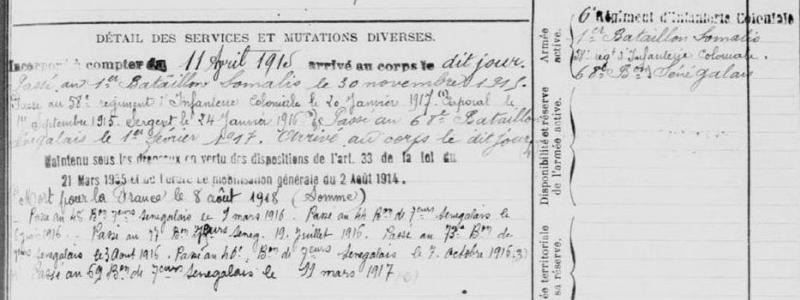 DÉTAIL DES SERVICES ET MUTATIONS DIVERSES.
Incorporé à compter du 11 Avril 1915 arrivé au corps le dit jour.
Passé au 1er Bataillon Somalis le 30 novembre 1915.
Passé au 58e régiment d'Infanterie Coloniale le 20 Janvier 1917. Caporal le
1er Septembre 1915. Sergent le 24 Janvier 1916. Passé au 68e Bataillon
Sénégalais le 1er février 1917. Arrivé au corps le dit jour
Maintenu sous les drapeaux en vertu des dispositions de l'art. 33 de la loi du
21 Mars 1905 et de l'ordre de mobilisation générale du 2 Août 1914.
Mort pour la France le 8 août 1918 (Somme)
Passé au 48 Bon sénégalais le 9 mars 1916. Passé au 44 Bon de Sénégalais le
juin 1916. Passé au 77 Bon Seneg. 19 Juillet 1916. Passé au 73e Bon de
sénégalais le 3 août 1916. Passé au 40e, Bon de Sénégalais le 7 octobre 1916.
Passé au 69 Bon de Senegalais le 11 mars 1917
6e Régiment d'Infanterie Coloniale
1er Bataillon Somalis
58e regt d'Infanterie Coloniale
68e Bon Sénégalais
Armée active.
Disponibilité et réserve
de l'armée active.
ée territoriale
sa réserve.